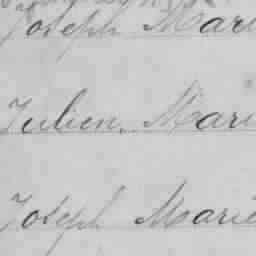 Joseph Mari
Julien Mari
Joseph Marie